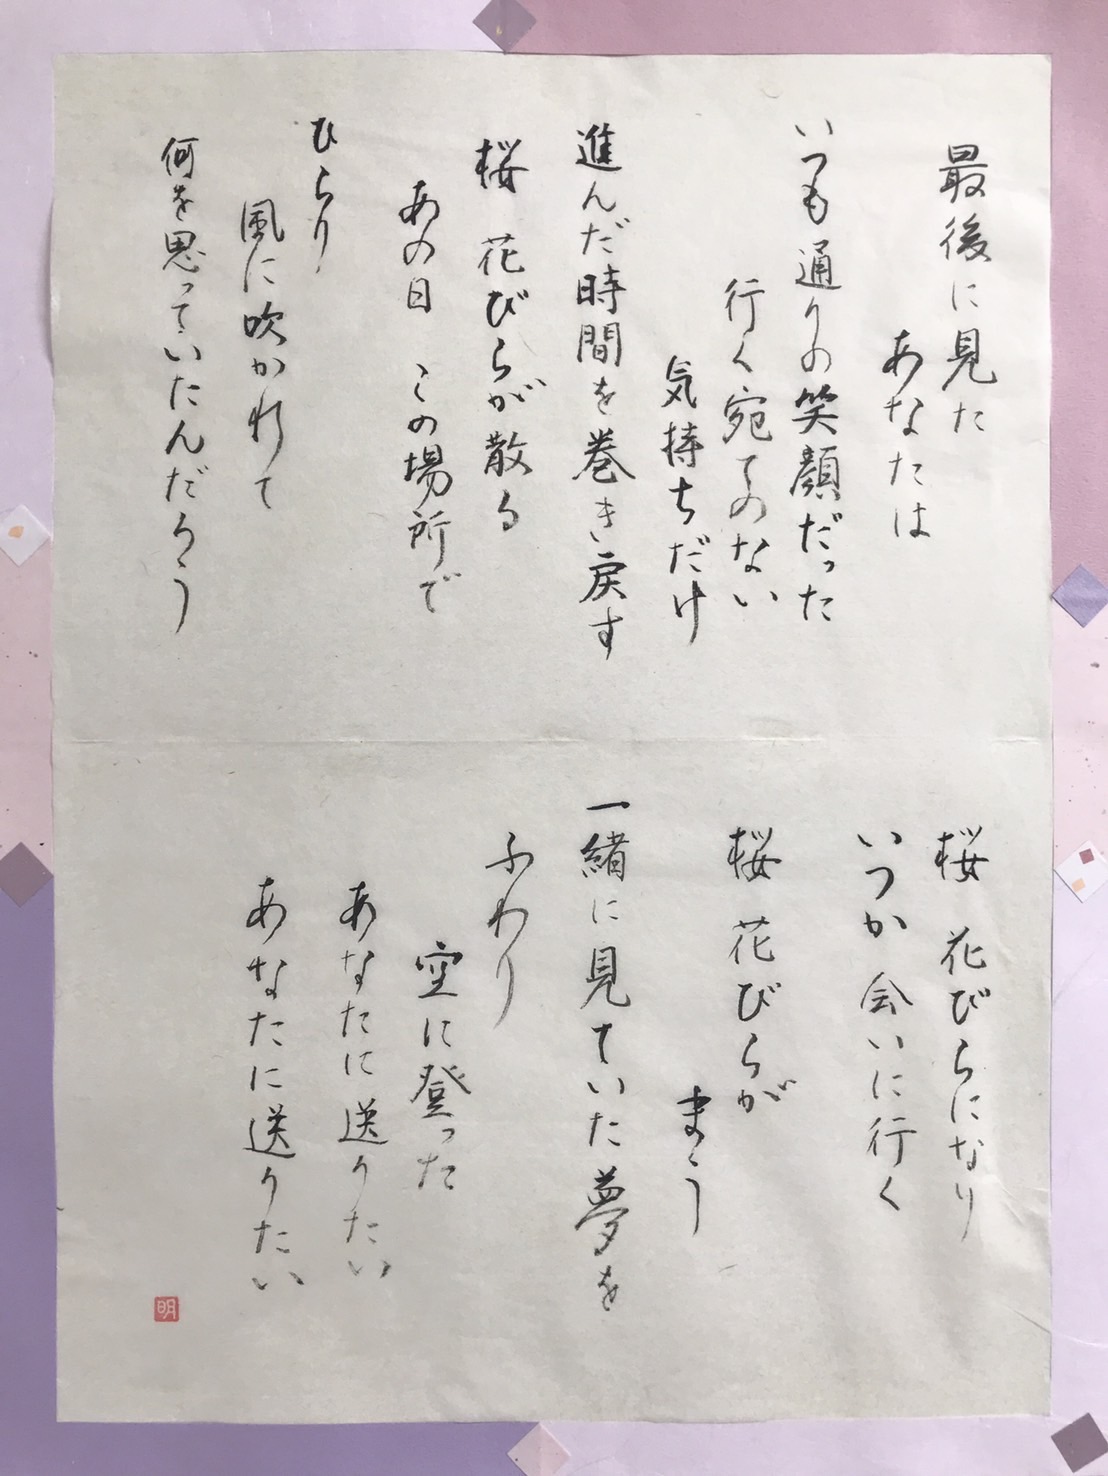 最後に見た
あなたは
いつも通りの笑顔だった
行く宛てのない
気持ちだけ
進んだ時間を巻き戻す
桜 花びらが散る
あの日 この場所で
ひらり
風に吹かれて
何を思っていたんだろう
桜 花びらになり
いつか会いに行く
桜 花びらが
まう
一緒に見ていた夢を
ふわり
空に登った
あなたに送りたい
あなたに送りたい
明